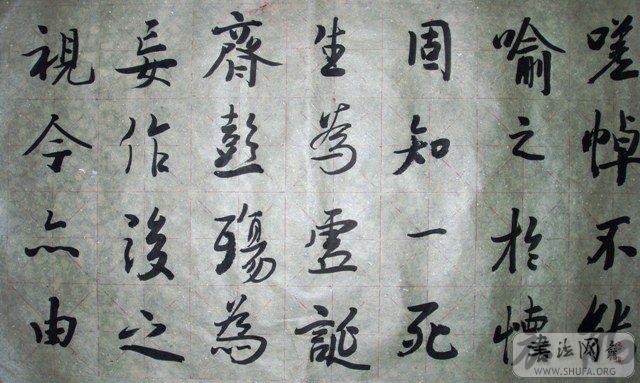 嗟悼不能
喻之於懐
固知一死
生為虚誕
齊彭殤為
妄作後之
視今亦由
书法网
WWW.SHUFA.ORG